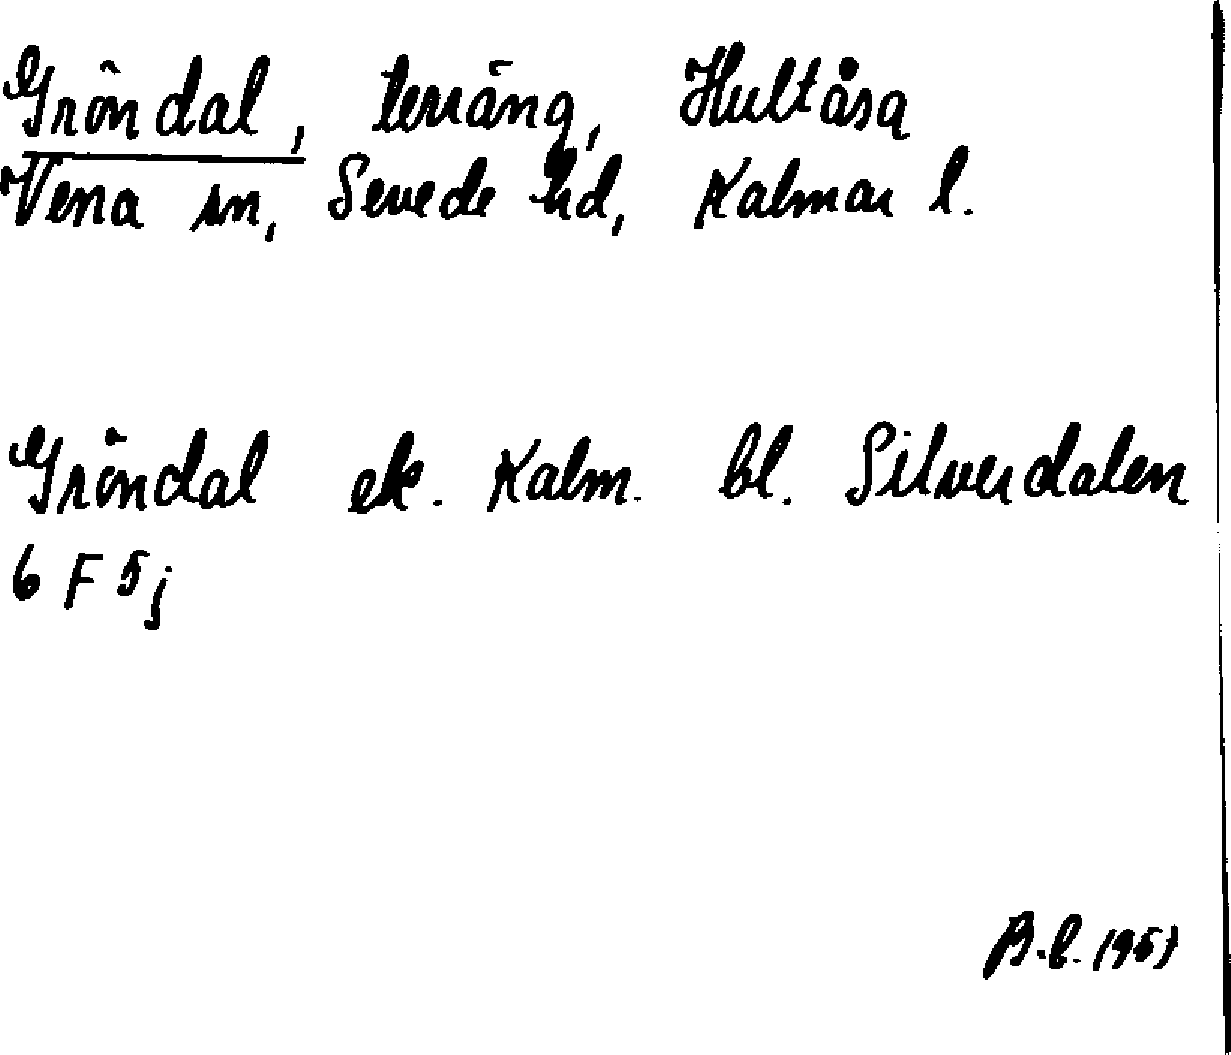 Gröndal, terräng, Hultåsa
Vena sn, Sevede hd, Kalmar l.
Gröndal ek. Kalm. bl. Silverdalen
6 F 5j
B.L. 1957